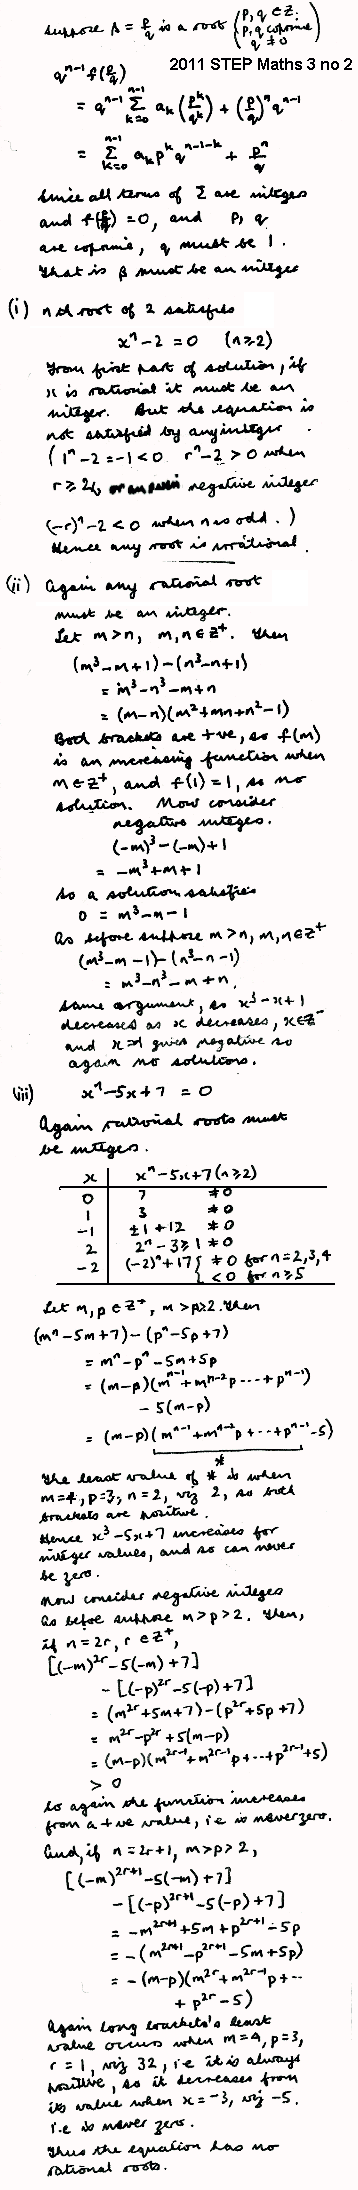 suppose β = p/q is a root (p, q ∈ Z, p, q coprime q ≠ 0)
2011 STEP Maths 3 no 2
q^{n-1} f(p/q)
= q^{n-1} Σ_{k=0}^{n-1} a_k (p^k/q^k) + (p/q)^n q^{n-1}
= Σ_{k=0}^{n-1} a_k p^k q^{n-1-k} + p^n/q
Since all terms of Σ are integers
and f(p/q) = 0, and p, q
are coprime, q must be 1.
That is β must be an integer
(i) nth root of 2 satisfies
x^n - 2 = 0 (n ≥ 2)
From first part of solution, if
x is rational it must be an
integer. But the equation is
not satisfied by any integer
(1^n - 2 = -1 < 0 r^n - 2 > 0 when
r ≥ 2, negative integer
(-r)^n - 2 < 0 when n is odd.)
Hence any root is irrational.
(ii) Again any rational root
must be an integer.
Let m > n, m, n ∈ Z^+. Then
(m^3 - m + 1) - (n^3 - n + 1)
= m^3 - n^3 - m + n
= (m - n)(m^2 + mn + n^2 - 1)
Both brackets are +ve, so f(m)
is an increasing function when
m ∈ Z^+, and f(1) = 1, so no
solution. Now consider
negative integers.
(-m)^3 - (-m) + 1
= -m^3 + m + 1
So a solution satisfies
0 = m^3 - m - 1
As before suppose m > n, m, n ∈ Z^+
(m^3 - m - 1) - (n^3 - n - 1)
= m^3 - n^3 - m + n.
Same argument, so x^3 - x + 1
decreases as x decreases, x ∈ Z^-
and gives negative so
again no solutions.
(iii) x^n - 5x + 7 = 0
Again rational roots must
be integers.
x | x^n - 5x + 7 (n ≥ 2)
0 7 ≠ 0
1 3 ≠ 0
-1 ±1 + 12 ≠ 0
2 2^n - 3 ≥ 1 ≠ 0
-2 (-2)^n + 17 { ≠ 0 for n = 2, 3, 4
< 0 for n ≥ 5
Let m, p ∈ Z^+, m > p > 2. Then
(m^n - 5m + 7) - (p^n - 5p + 7)
= m^n - p^n - 5m + 5p
= (m - p)(m^{n-1} + m^{n-2} p ---- + p^{n-1})
- 5(m - p)
= (m - p)(m^{n-1} + m^{n-2} p + -- + p^{n-1} - 5)
*
The least value of * is when
m = 4, p = 3, n = 2, viz 2, so both
brackets are positive.
Hence x^3 - 5x + 7 increases for
integer values, and so can never
be zero.
Now consider negative integers
As before suppose m > p > 2. Then,
if n = 2r, r ∈ Z^+,
[(-m)^{2r} - 5(-m) + 7]
- [(-p)^{2r} - 5(-p) + 7]
= (m^{2r} + 5m + 7) - (p^{2r} + 5p + 7)
= m^{2r} - p^{2r} + 5(m - p)
= (m - p)(m^{2r-1} + m^{2r-1} p + -- + p^{2r-1} + 5)
> 0
So again the function increases
from a +ve value, i.e is never zero.
And, if n = 2r+1, m > p > 2,
[(-m)^{2r+1} - 5(-m) + 7]
- [(-p)^{2r+1} - 5(-p) + 7]
= -m^{2r+1} + 5m + p^{2r+1} - 5p
= -(m^{2r+1} - p^{2r+1} - 5m + 5p)
= -(m - p)(m^{2r} + m^{2r-1} p + --
+ p^{2r} - 5)
Again long brackets's least
value occurs when m = 4, p = 3,
r = 1, viz 32, i.e it is always
positive, so it decreases from
its value when x = -3, viz -5.
i.e is never zero.
Thus the equation has no
rational roots.